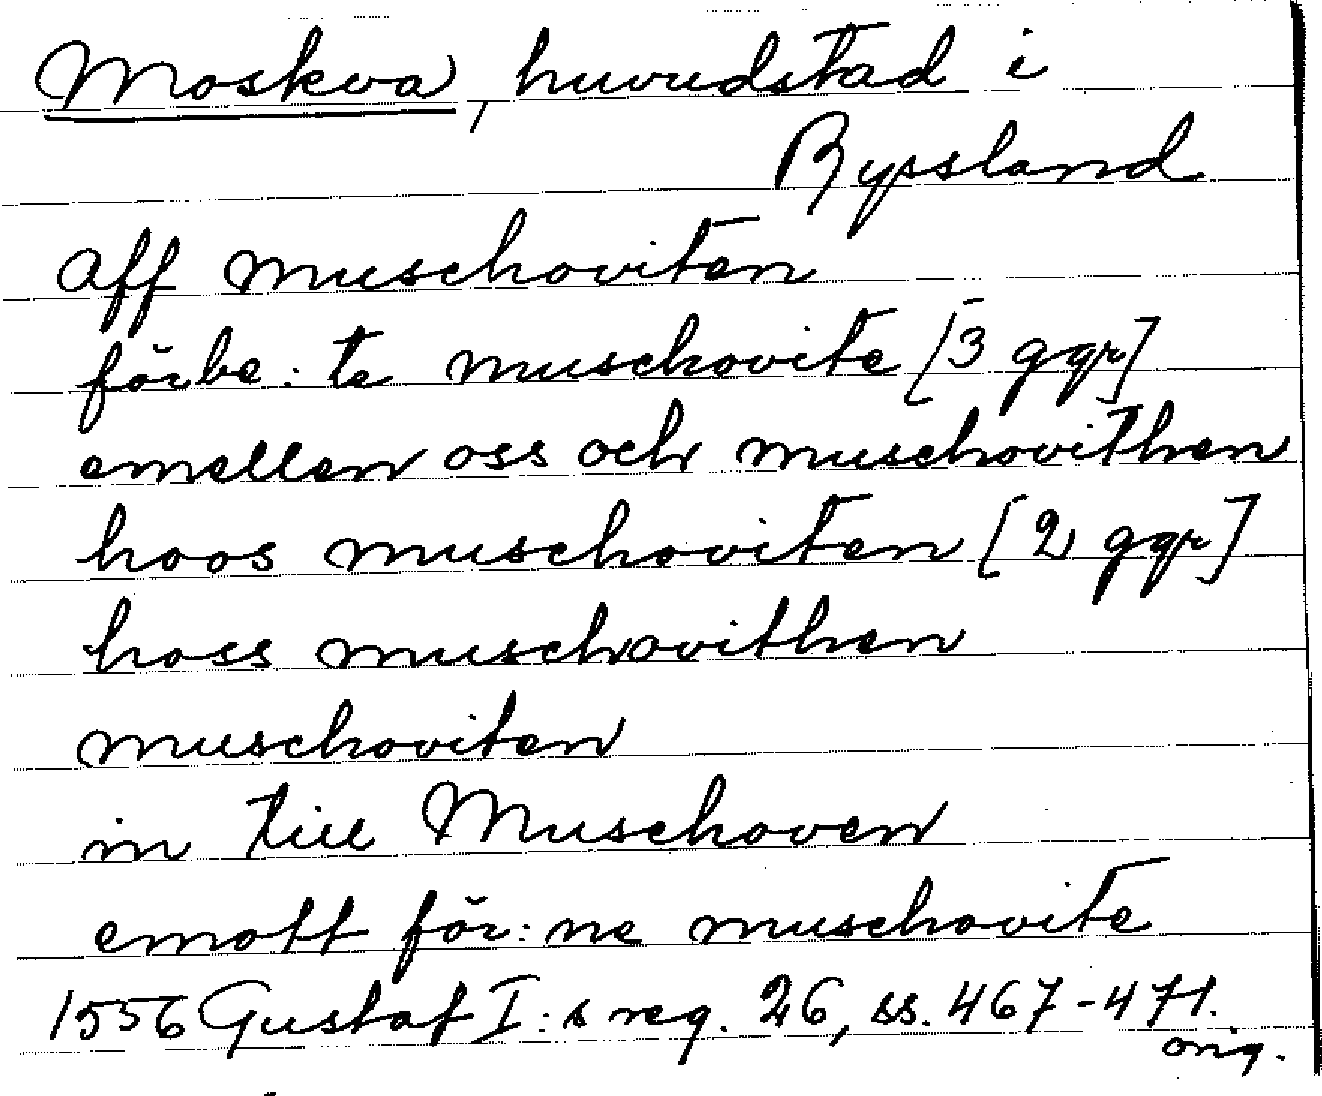 Moskva, huvudstad i
Ryssland
aff muschoviten
förbe: te muschovite [3 ggr]
emellen oss och muschovithen
hoos muschoviten [2 ggr]
hoss muschovithen
muschoviten
in till Muschoven
emott för: ne muschovite
1556 Gustaf I:s reg. 26, ss. 467-471.
orig.